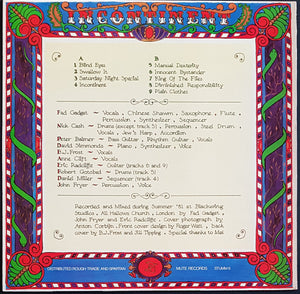 INCONTINENT
A
1 Blind Eyes
2 Swallow It
3 Saturday Night Special
4 Incontinent
B
5 Manual Dexterity
6 Innocent Bystander
7 King Of The Flies
8 Diminished Responsibility
9 Plain Clothes
Fad Gadget ~ Vocals, Chinese Shawm, Saxophone, Flute,
Percussion, Synthesizer, Sequencer
Nick Cash ~ Drums (except track 5), Percussion, Steel Drum,
Vocals, Jew's Harp, Accordion
Peter Balmer ~ Bass Guitar, Rhythm Guitar, Vocals
David Simmonds ~ Piano, Synthesizer, Voice
B.J. Frost ~ Vocals
Anne Clift ~ Vocals
Eric Radcliffe ~ Guitar (tracks 6 and 9)
Robert Gotobed ~ Drums (track 5)
Daniel Miller ~ Sequencer (track 4)
John Fryer ~ Percussion, Voice
Recorded and Mixed during Summer '81 at Blackwing
Studios, All Hallows Church, London by Fad Gadget,
John Fryer and Eric Radcliffe. Cover photograph by
Anton Corbijn. Front cover design by Roger Watt, back
cover by B.J. Frost and Jill Tipping. Special thanks to Mal
DISTRIBUTED ROUGH TRADE AND SPARTAN
MUTE RECORDS
STUMM 6